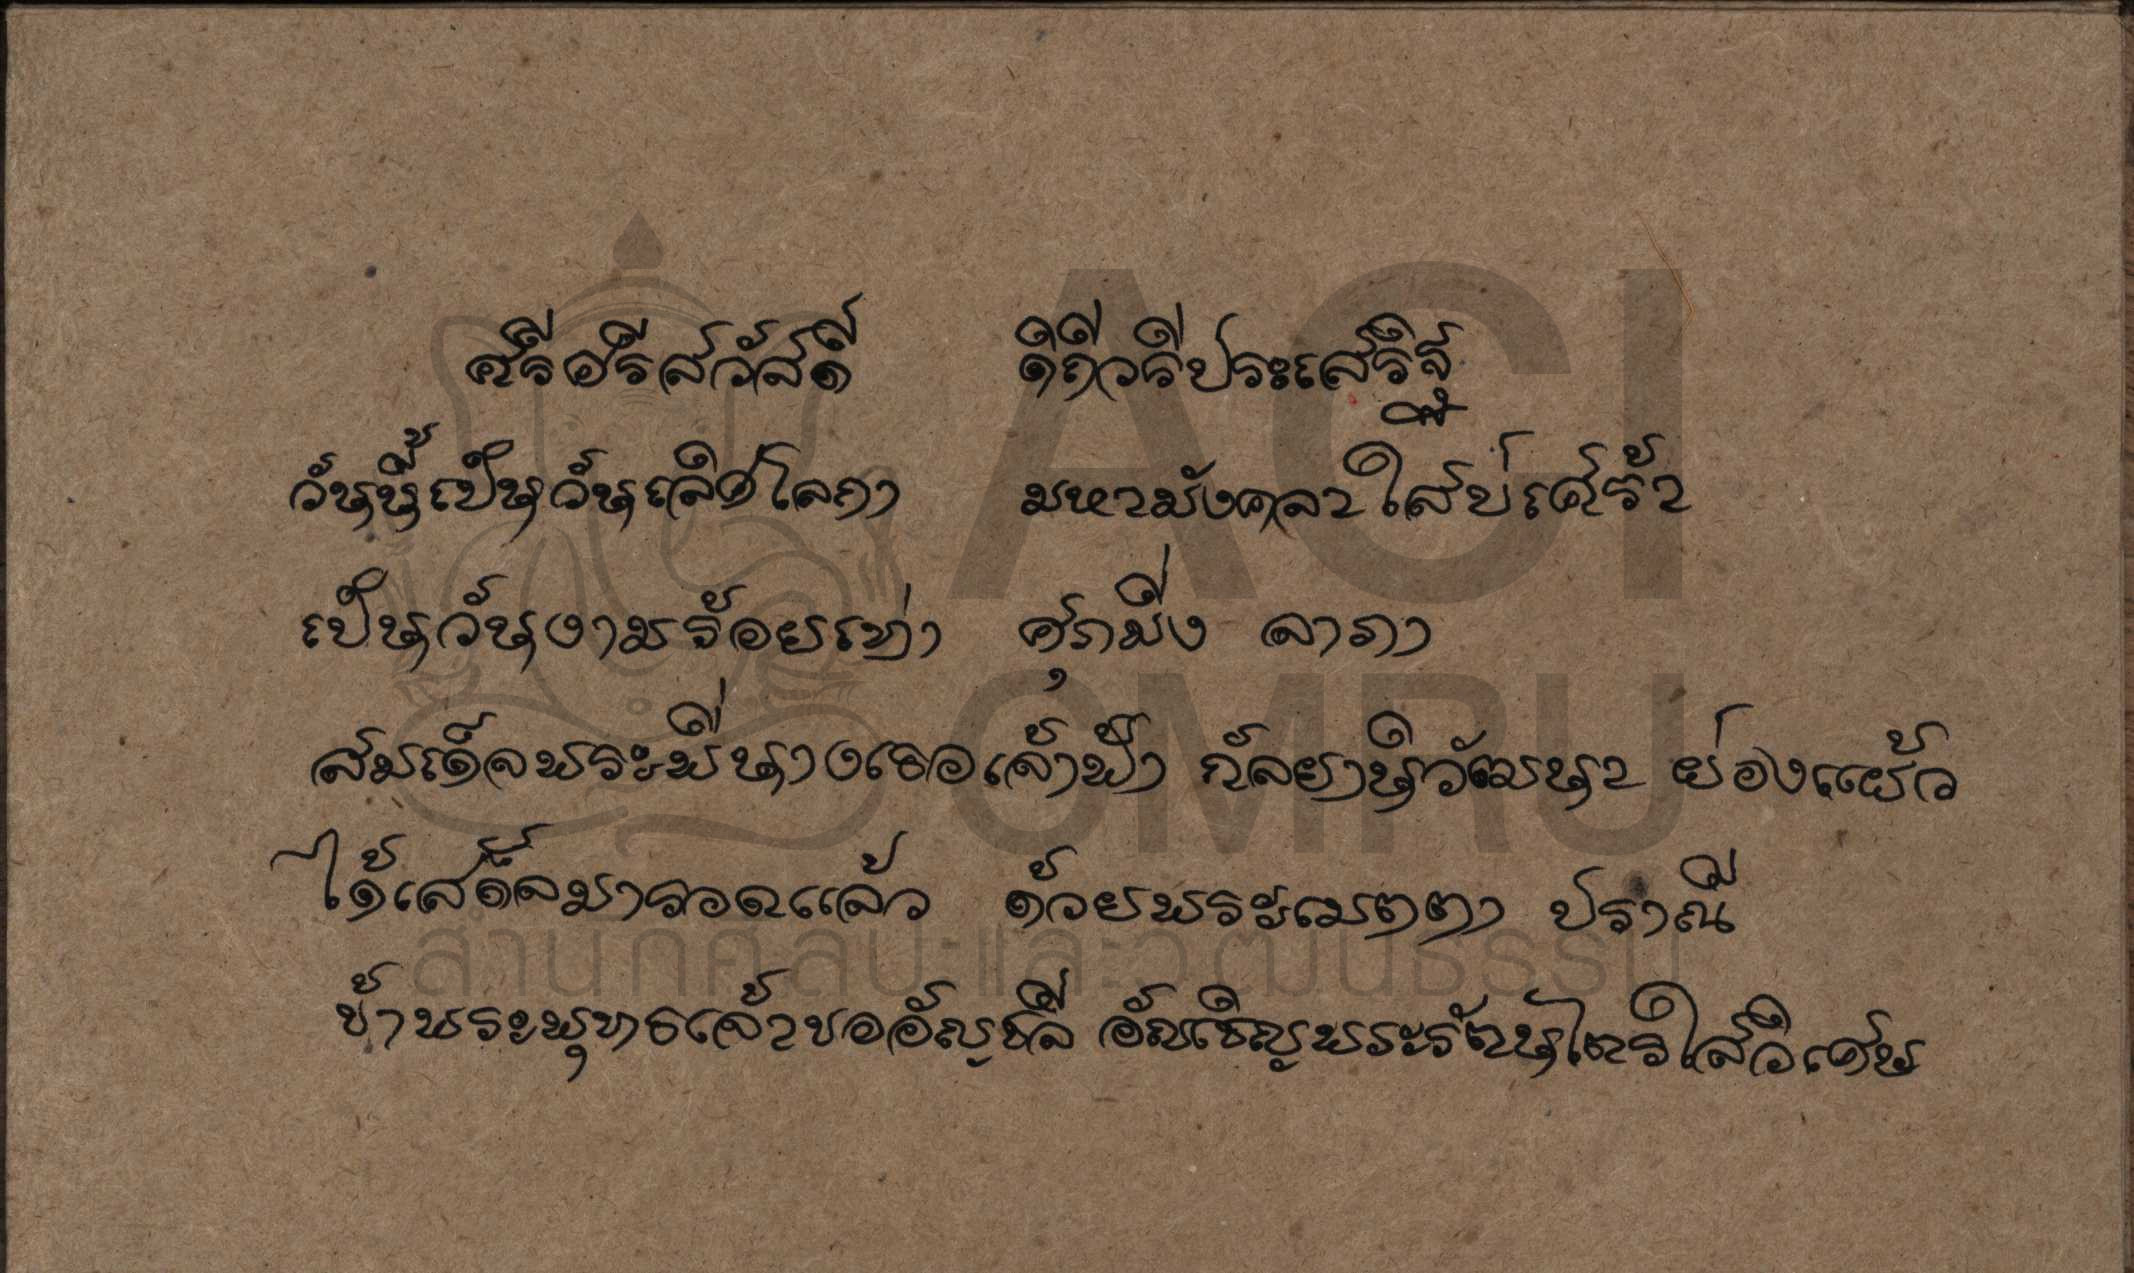 ศรีอรีสวัสดี ดิถีวรีประเสริฐ
วันนี้เป็นวันเลิศโลกา มหามังคลาใสบ่เศร้า
เป็นวันงามร้อยเท่า ศุภมิ่ง ลาภา
สมเด็จพระพี่นางเธอเจ้าฟ้า กัลยานิวัฒนา ย่องแย้ว
ได้เสด็จมารอดแล้ว ด้วยพระเมตตา ปราณี
ข้าพระพุทธเจ้าขออัญชลี อัญเชิญพระรัตนไตรใสวิเศษ
ACI
CMRU
สำนักศิลปะและวัฒนธรรม